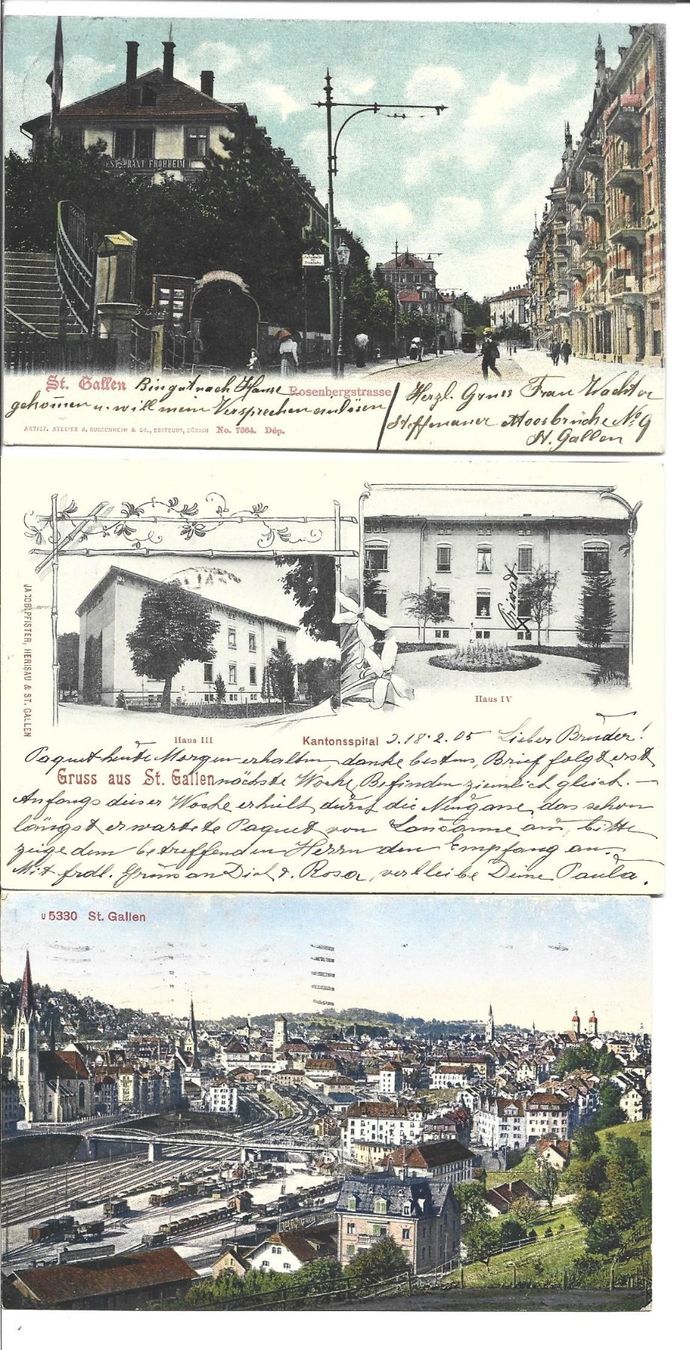 RESTAURANT FROHHEIM
St. Gallen Bin gut nach Hause
Rosenbergstrasse
gekommen u. will mein Versprechen einlösen
Herzl. Gruss Frau Wachter
Moosbrücke No 9
St. Gallen
ARTIST. ATELIER H. GUGGENHEIM & Co., EDITEURS, ZÜRICH No. 7364. Dép.
JACOB PFISTER, HERISAU & ST. GALLEN
Privat
Haus III
Haus IV
Kantonsspital 18.2.05 Lieber Bruder!
Paquet heute Morgen erhalten danke bestens, Brief folgt erst
Gruss aus St. Gallen nächste Woche, Befinden ziemlich gleich. –
Anfangs dieser Woche erhielt durch die Neugasse, das schon
längst erwartete Paquet von Lausanne aus, bitte
zeige dem betreffenden Herrn den Empfang an.
Mit frdl. Gruss an Dich & Rosa, verbleibe Deine Paula.
U 5330 St. Gallen